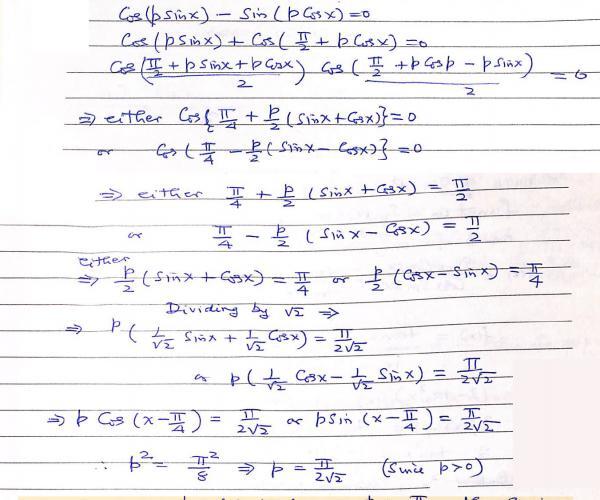 Cos(p Sinx) - Sin(p Cosx) = 0
Cos(p Sinx) + Cos(π/2 + p Cosx) = 0
Cos(π/2 + p Sinx + p Cosx)/2 Cos(π/2 + p Cosp - p Sinx)/2 = 0
⇒ either Cos{π/4 + p/2 (Sinx + Cosx)} = 0
or Cos(π/4 - p/2 (Sinx - Cosx)} = 0
⇒ either π/4 + p/2 (Sinx + Cosx) = π/2
or π/4 - p/2 (Sinx - Cosx) = π/2
either
⇒ p/2 (Sinx + Cosx) = π/4 or p/2 (Cosx - Sinx) = π/4
Dividing by √2 ⇒
⇒ p(1/√2 Sinx + 1/√2 Cosx) = π/2√2
or p(1/√2 Cosx - 1/√2 Sinx) = π/2√2
⇒ p Cos(x - π/4) = π/2√2 or p Sin(x - π/4) = π/2√2
∴ p² = π²/8 ⇒ p = π/2√2 (Since p > 0)